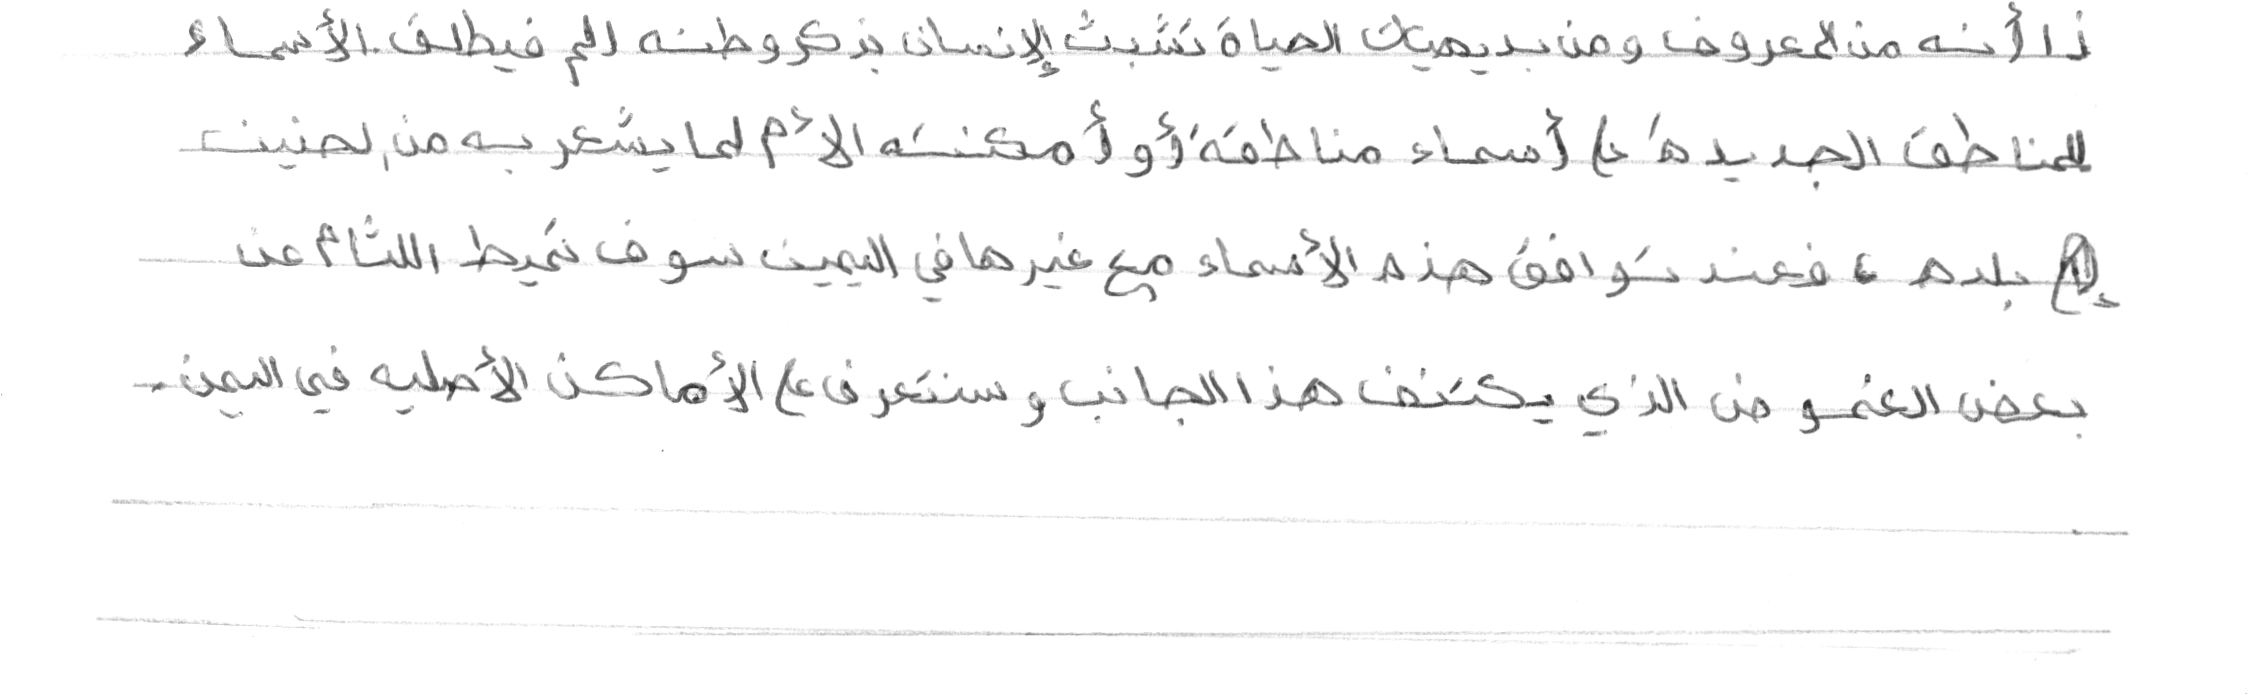 ذا أنه من المعروف ومن بديهيات الحياة تشبث الإنسان بذكر وطنه الأم فيطلق الأسماء
للمناطق الجديدة على أسماء مناطقه أو أمكنته الأم لما يشعر به من لحنين
بلده ، فعند توافق هذه الأسماء مع غيرها في اليمن سوف نميط اللثام عن
بعض الغموض الذي يكتنف هذا الجانب وسنتعرف على الأماكن الأصليه في اليمن.